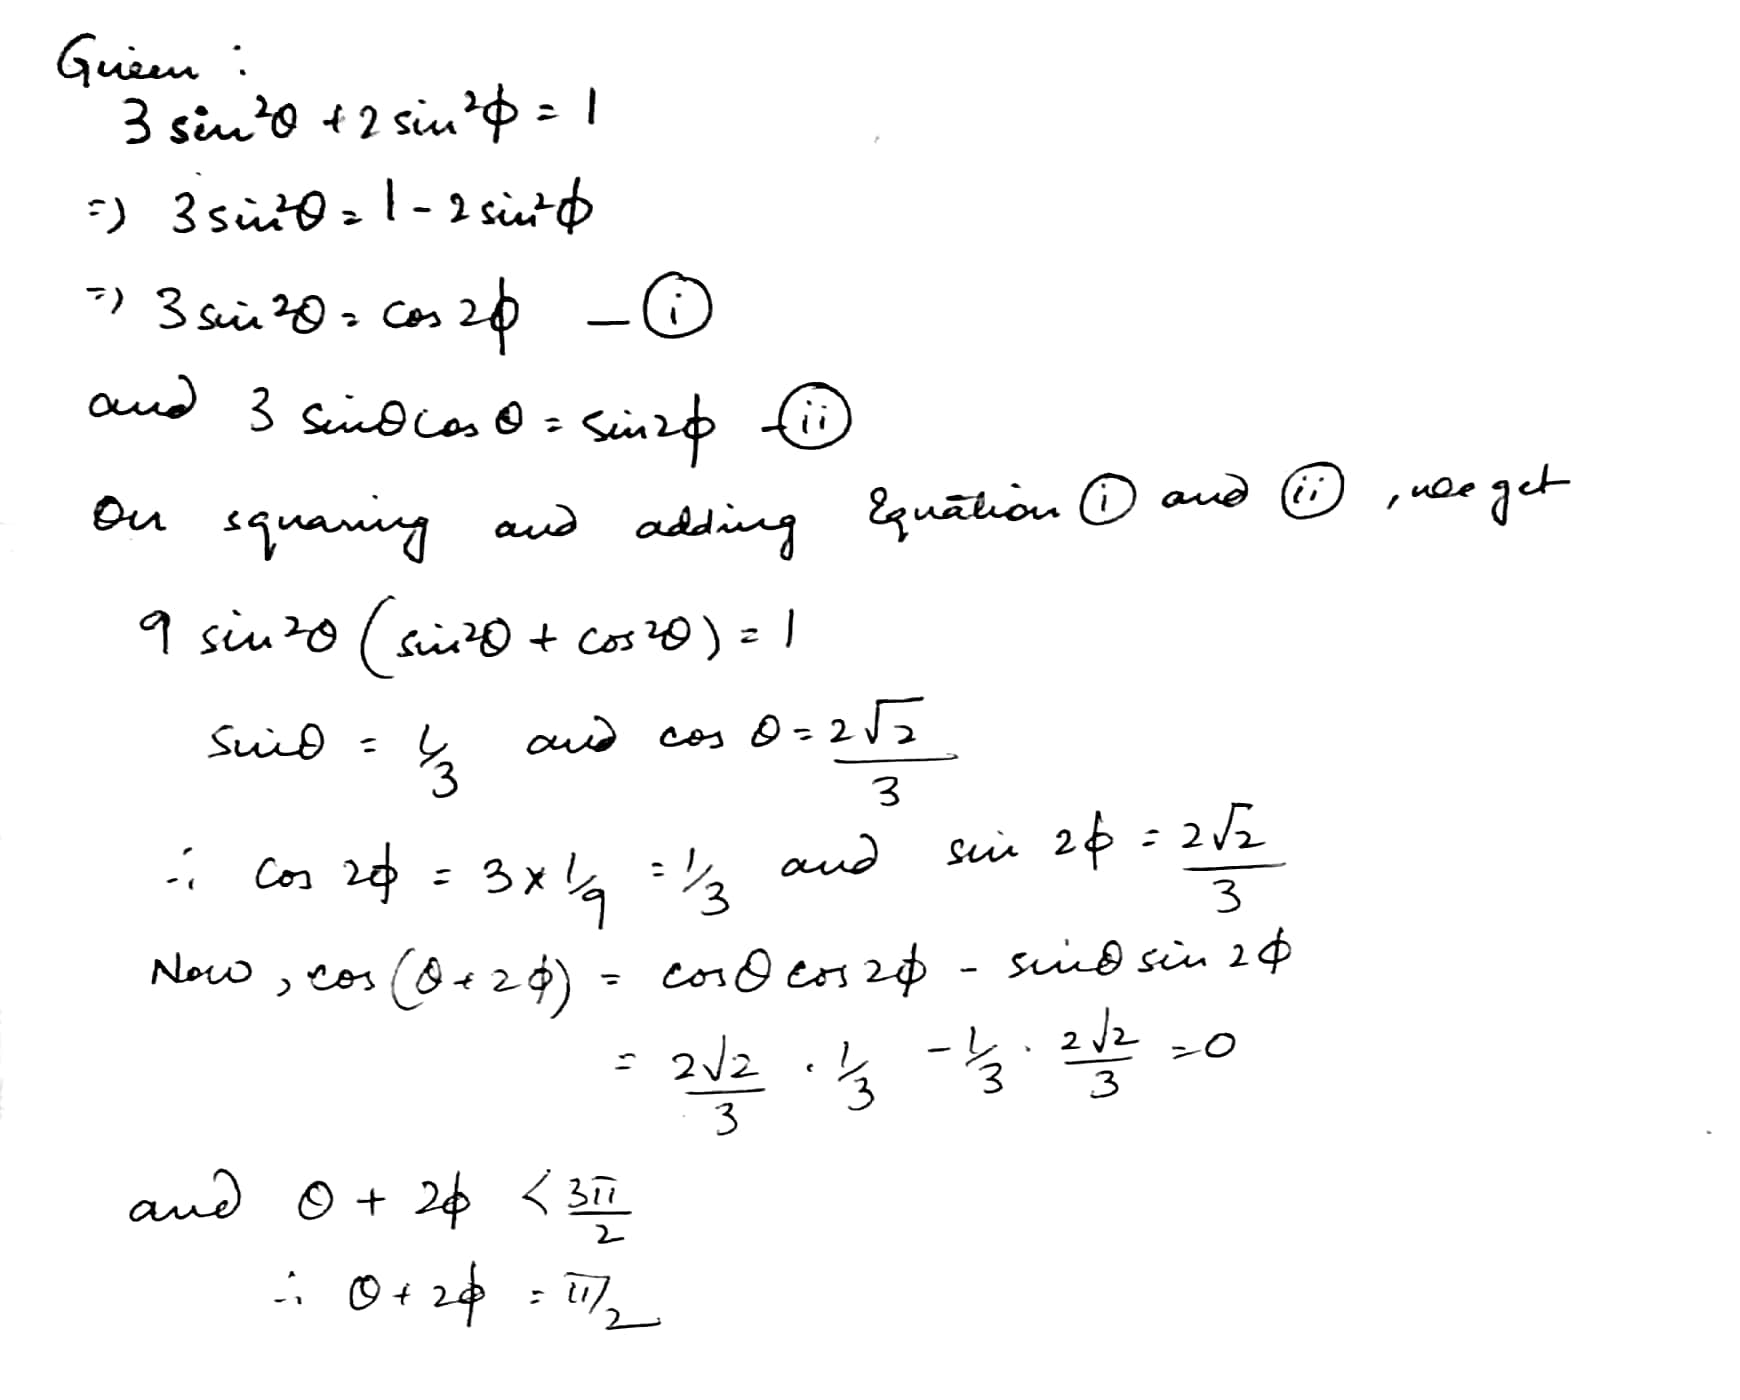 Given :
3 sin²θ + 2 sin²ϕ = 1
=) 3 sin²θ = 1 - 2 sin²ϕ
=) 3 sin²θ = cos 2ϕ — (i)
and 3 sinθ cos θ = sin 2ϕ — (ii)
On squaring and adding Equation (i) and (ii), we get
9 sin²θ (sin²θ + cos²θ) = 1
sinθ = 1/3 and cos θ = 2√2/3
∴ cos 2ϕ = 3 × 1/9 = 1/3 and sin 2ϕ = 2√2/3
Now, cos (θ + 2ϕ) = cosθ cos 2ϕ - sinθ sin 2ϕ
= 2√2/3 · 1/3 - 1/3 · 2√2/3 = 0
and θ + 2ϕ < 3π/2
∴ θ + 2ϕ = π/2